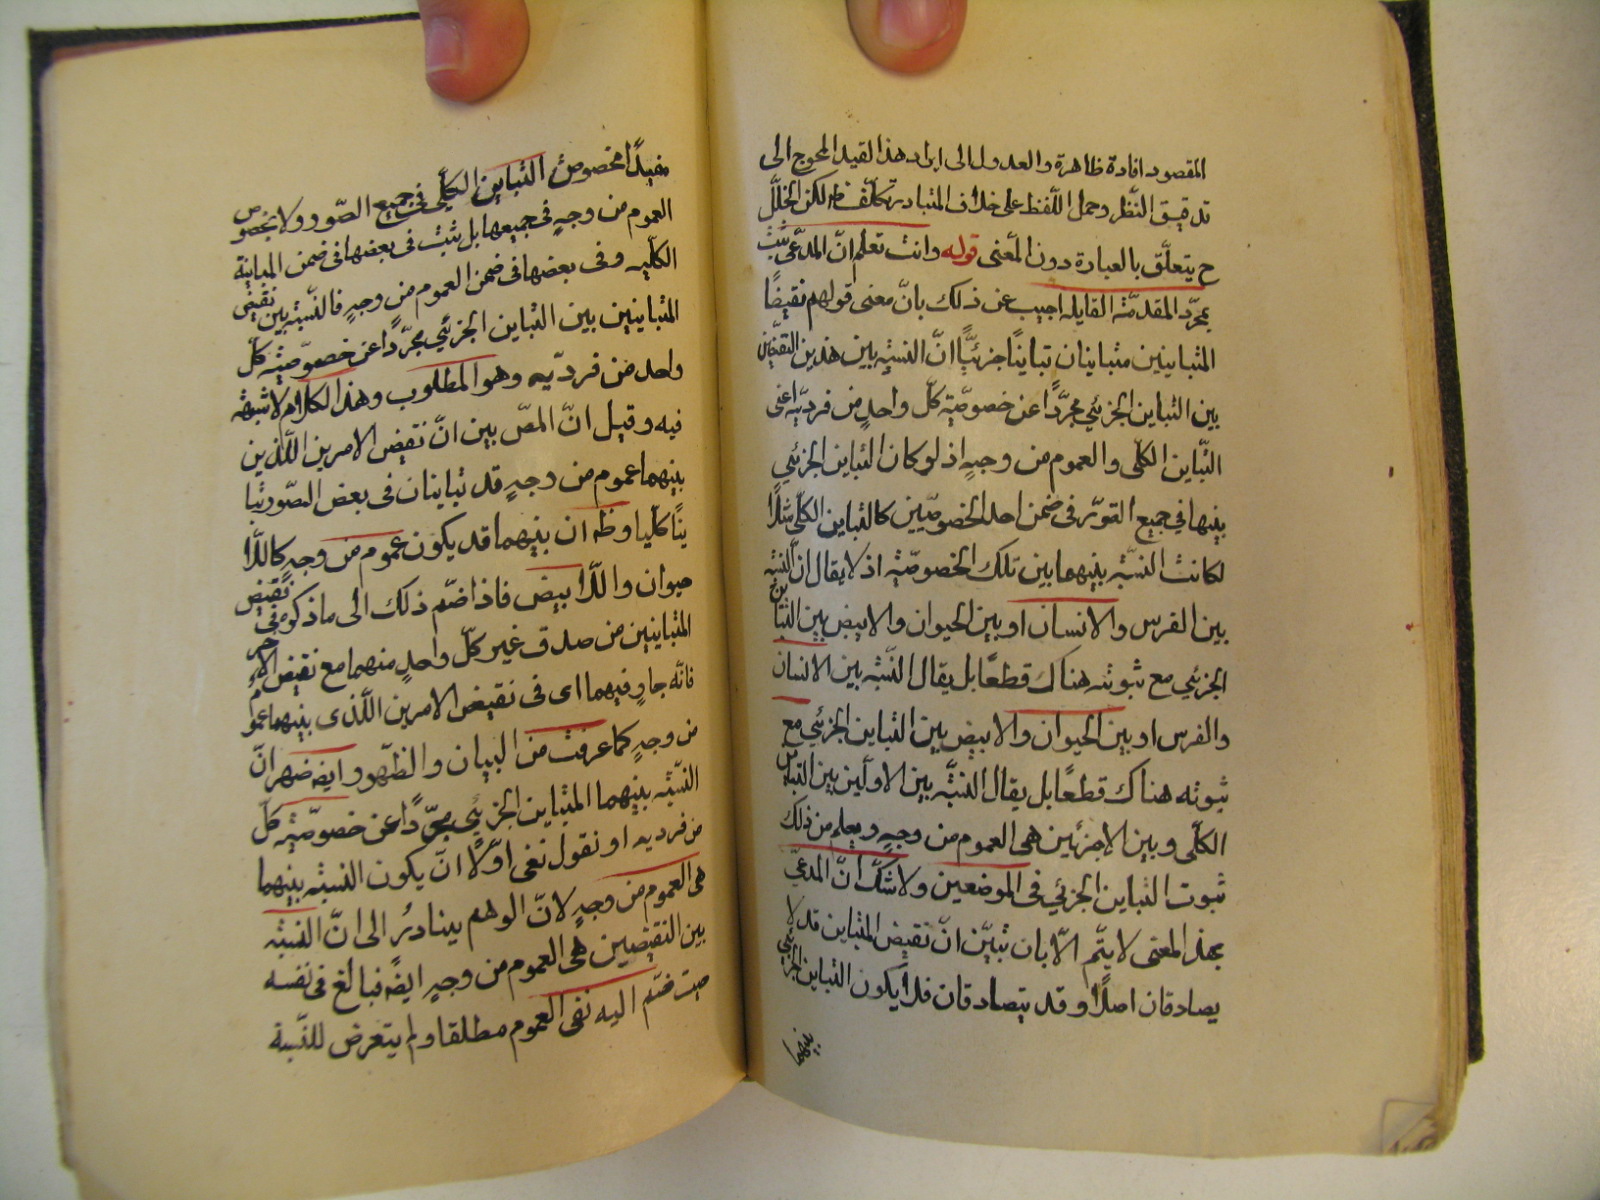 المقصود افادة ظاهرة والعدول الى ايراد هذا القيد المحوج الى
تدقيق النظر وحمل اللفظ على خلاف المتبادر تكلّف ظ لكن الخلل
ح يتعلّق بالعبارة دون المعنى قوله وانت تعلم انّ المدّعى يثبت
بمجرّد المقدمّة القايله اجيب عن ذلك بانّ معنى قولهم نقيضا
المتباينين متباينان تباينًا جزئيًّا انّ النسبة بين هذين النقيضين
بين التباين الجزئي مجرّدًا عن خصوصّية كلّ واحدٍ من فرديّه اعنى
التّباين الكلّى والعموم من وجهٍ اذ لو كان التباين الجزئي
بينهما في جميع الصّور في ضمن احد الخصوصّيين كالتباين الكلّى مثلًا
لكانت النسبّة بينهما بين تلك الخصوصّية اذ لا يقال انّ النسبّة
بين الفرس والانسان او بين الحيوان والابيض بين التباين
الجزئي مع ثبوته هناك قطعًا بل يقال النّسبة بين الانسان
والفرس او بين الحيوان والابيض بين التباين الجزئي مع
ثبوته هناك قطعًا بل يقال النسبّة بين الاولّين بين التباين
الكلّى وبين الاخرئين هى العموم من وجهٍ ويعلم من ذلك
ثبوت التباين الجزئي فى الموضعين ولا شكّ انّ المدعىّ
بهذ المعنى لا يتّم الّا بان تبيّن انّ نقيض المتباين قد لا
يصادقان اصلًا وقد يتصادقان فلا يكون التباين الجزئي
بينهما
مفيدًا مخصوص التباين الكلّى فى جميع الصّور ولا بخصوص
العموم من وجهٍ فى جميعها بل ثبت فى بعضها فى ضمن المباينة
الكلّيه وفى بعضها فى ضمن العموم من وجهٍ فالنّسبة بين نقيضى
المتباينين بين التباين الجزئي مجرّدًا عن خصوصّيته كلّ
واحد من فرديّه وهو المطلوب وهذا الكلام لا شبهة
فيه وقيل انّ المصّ بين انّ نقيض الامرين اللّذين
بينهما عموم من وجهٍ قد تباينان فى بعض الصّور تبا
ينًا كلّيا وظ ان بينهما قد يكون عموم من وجهٍ كاللّا
حيوان واللّا ابيض فاذا ضمّ ذلك الى ما ذكره فى نقيض
المتباينين من صدق غير كلّ واحدٍ منهما مع نقيض الاخر
فانّه جاوٍ فيهما اى فى نقيض الامرين اللّذى بينهما عموم
من وجهٍ كما عرفت من البيان والظّهور وايضً ظهر انّ
النسبّة بينهما المتباين الجزئي مجرّدًا عن خصوصّية كلّ
من فرديه او نقول نفى اوّلًا انّ يكون النسبّة بينهما
هى العموم من وجهٍ لانّ الوهم يبنادرُ الى انّ النسبة
بين النقيضين هى العموم من وجهٍ ايضً فبالغ فى نفسه
حيث ضمّ اليه نفى العموم مطلقا ولم يتعرض للنّسبة